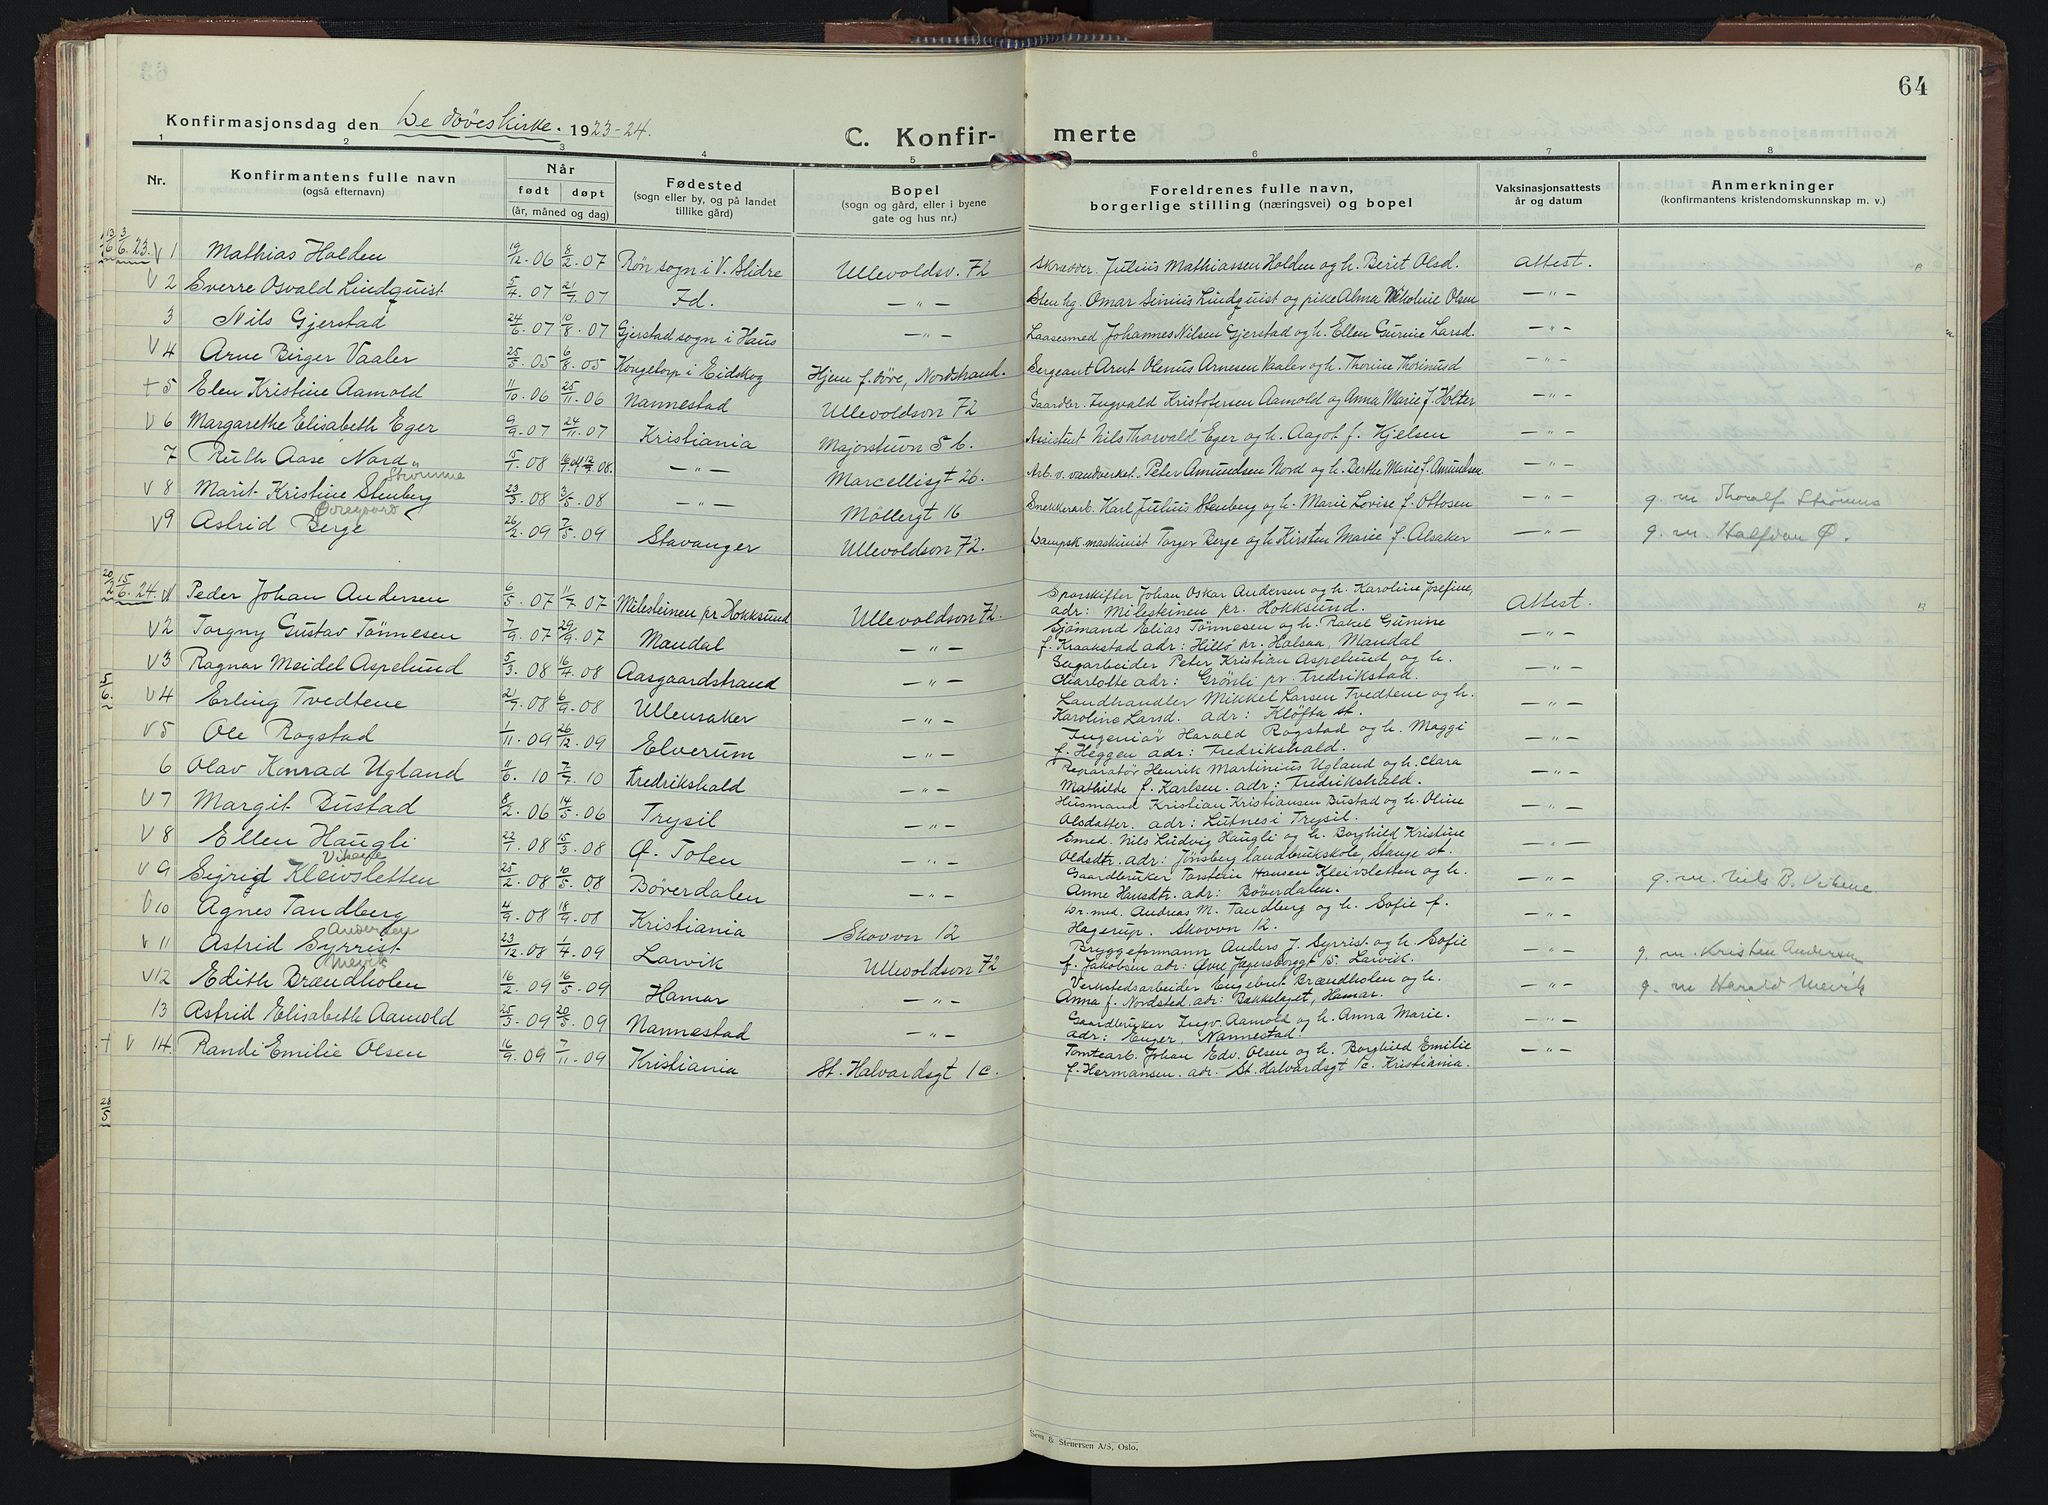 64
Konfirmasjonsdag den De døves kirke. 1923-24.
C. Konfir- merte
1 2 3 4 5 6 7 8
Nr.
Konfirmantens fulle navn
(også efternavn)
Når
født døpt
(år, måned og dag)
Fødested
(sogn eller by, og på landet
tillike gård)
Bopel
(sogn og gård, eller i byene
gate og hus nr.)
Foreldrenes fulle navn,
borgerlige stilling (næringsvei) og bopel
Vaksinasjonsattests
år og datum
Anmerkninger
(konfirmantens kristendomskunnskap m. v.)
13/6 3/6 23. V 1 Mathias Holden 19/12. 06 8/2. 07 Røn sogn i V. Slidre Ullevoldsv. 72 Skrædder. Julius Mathiassen Holden og h. Berit Olsd. Attest.
V 2 Sverre Osvald Lindquist 5/4. 07 21/7. 07 Id. — " — Omar Sinius Lindquist og pike Alma Nikoline Olsen — " —
3 Nils Gjerstad 24/6. 07 10/8. 07 Gjerstad sogn i Haus — " — Laasesmed Johannes Nilsen Gjerstad og h. Ellen Gurine Larsd. — " —
V 4 Arne Birger Vaaler 25/5. 05 6/8. 05 Kongetorp i Eidskog Hjem f. døve, Nordstrand. Sergeant Arnt Olenus Arnesen Vaaler og h. Thorine Thorinusd — " —
+ 5 Elen Kristine Aamold 11/10. 06 25/11. 06 Nannestad Ullevoldsvn 72 Gaardbr. Ingvald Kristofersen Aamold og Anna Marie f. Holter — " —
V 6 Margarethe Elisabeth Eger 9/9. 07 24/11. 07 Kristiania Majorstuvn 5 b. Assistent Nils Thorvald Eger og h. Aagot f. Kjelsen — " —
7 Ruth Aase Nord 15/1. 08 — " — Marcellisgt 26. Arb. v. vandverket. Peter Amundsen Nord og h. Berthe Marie f. Amundsen. — " —
Strømme
V 8 Marit Kristine Stenberg 23/3. 08 3/5. 08 — " — Möllergt 16 Snekkerarb. Karl Julius Stenberg og h. Marie Lovise f. Ottosen — " — g. m. Thoralf Strømme
Øvregaard
V 9 Astrid Berge 26/2. 09 7/5. 09 Stavanger Ullevoldsvn 72. Dampsk. maskinist Torger Berge og h Kirsten Marie f. Alsaker — " — g. m. Halfdan Ø.
20/2 15/6. 24. V 1 Peder Johan Andersen 6/5. 07 11/7. 07 Milesteinen pr Hokksund Ullevoldsvn 72. Sporskifter Johan Oskar Andersen og h. Karoline Josefine, Attest.
adr: Milesteinen pr. Hokksund.
V 2 Torgny Gustav Tönnesen 7/9. 07 29/9. 07 Mandal — " — Sjömand Elias Tönnesen og h. Rakel Gunine — " —
f. Kraakstad adr: Hillö pr. Halsaa, Mandal
V 3 Ragnar Meidel Aspelund 5/3. 08 16/4. 08 Aasgaardstrand — " — Sagarbeider Peter Kristian Aspelund og h. — " —
Charlotte adr: Grönli pr. Fredrikstad.
5/6. V 4 Erling Tvedtene 21/7. 08 6/9. 08 Ullensaker — " — Landhandler Mikkel Larsen Tvedtene og h. — " —
Karoline Larsd. adr: Klöfta st.
V 5 Ole Rogstad 1/11. 09 26/12. 09 Elverum — " — Ingeniør Harald Rogstad og h. Maggi — " —
f. Heggen adr: Fredrikshald.
6 Olav Konrad Ugland 11/6. 10 7/7. 10 Fredrikshald — " — Reparatør Henrik Martinius Ugland og h. Clara — " —
Mathilde f. Karlsen. adr: Fredrikshald.
V 7 Margit Bustad 8/2. 06 14/5. 06 Trysil — " — Husmand Kristian Kristiansen Bustad og h. Oline — " —
Olsdatter. adr: Lutnes i Trysil.
V 8 Ellen Haugli 22/1. 08 15/3. 08 Ø. Toten — " — Smed. Nils Ludvig Haugli og h. Borghild Kristine — " —
Oldsdtr. adr: Jönsberg landbrukskole, Stange st.
Vikene
V 9 Sigrid Kleivsletten 25/2. 08 10/5. 08 Böverdalen — " — Gaardbruker Torstein Hansen Kleivsletten og h. — " — g. m. Nils B. Vikene
Anne Hansdtr. adr: Böverdalen.
V 10 Agnes Tandberg 4/9. 08 18/9. 08 Kristiania Skovvn 12 Dr. med. Andreas M. Tandberg og h. Sofie f. — " —
Hagerup. Skovvn 12.
Andersen
V 11 Astrid Syrrist 23/12. 08 1/4. 09 Larvik Ullevoldsvn 72 Bryggeformann Anders J. Syrrist og h. Sofie — " — g. m. Kristen Andersen
f. Jakobsen adr: Øvre Jægersborggt 5. Larvik.
Mevik
V 12 Edith Brændholen 16/2. 09 16/5. 09 Hamar — " — Verkstedsarbeider Engebret Brændholen og h. — " — g. m Harald Mevik
Anna f. Nordsted. adr: Bækkelaget, Hamar.
13 Astrid Elisabeth Aamold 25/3. 09 20/5. 09 Nannestad — " — Gaardbruker Ingv. Aamold og h. Anna Marie. — " —
adr: Enger, Nannestad
+ V 14. Randi Emilie Olsen 16/9. 09 7/11. 09 Kristiania St. Halvardsgt 1 c. Tomtearb. Johan Edv. Olsen og h. Borghild Emilie — " —
f. Hermansen. adr. St. Halvardsgt 1c. Kristiania.
28/5
Sem & Stenersen A/S, Oslo.